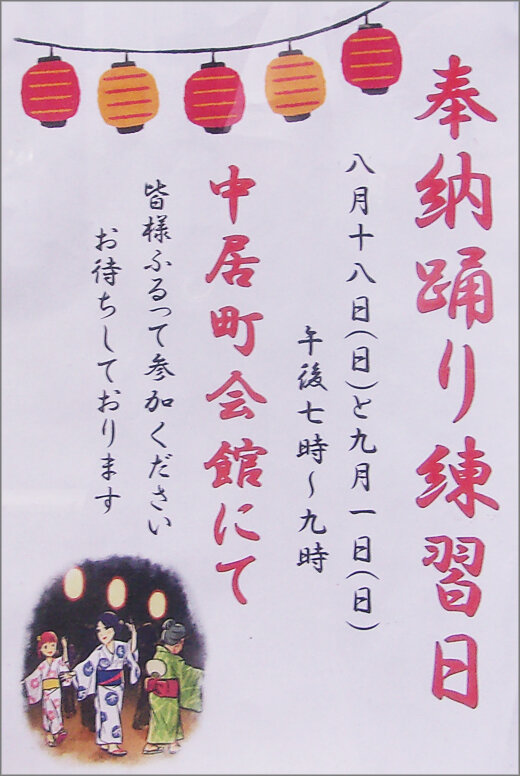 奉納踊り練習日
八月十八日(日)と九月一日(日)
午後七時～九時
中居町会館にて
皆様ふるって参加ください
お待ちしております